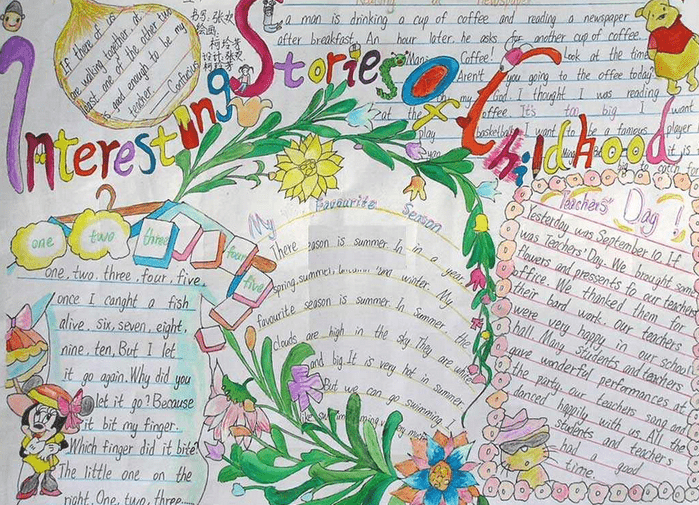 Interesting Stories Of Childhood
If there at
are walking together, at
least one of the other two
is good enough to be my
teacher. Confucius
书写: 张
绘画:
设计:
Reading a newspaper
a man is drinking a cup of coffee and reading a newspaper
after breakfast. An hour later, he asks for another cup of coffee.
Coffee! Look at the time
Aren't you going to the office today
God. I thought I was reading
at the office
It's too big I want
play basketball. I want to be a famous player
one two three four five
one, two, three, four, five,
once I canght a fish
alive. six, seven, eight,
nine, ten, But I let
it go again. Why did you
let it go? Because
it bit my finger.
Which finger did it bite
The little one on the
right. One, two, three......
My Favourite Season
There season is summer. In in a year,
spring, summer, and winter. My
favourite season is summer. In summer the
clouds are high in the sky. They are white
and big. It is very hot in summer.
But we can go swimming. I
like very much
Teachers' Day!
Yesterday was September 10. If
was Teachers' Day. We brought some
flowers and pressents fo our teachers
office. We thanked them for
their bard work. Our teachers
were very happy in our school
hall. Many students and teachers
gave wonderful performances at
the party. Our teachers sang and
danced happily with us. All the
students and teachers
had a good
time.